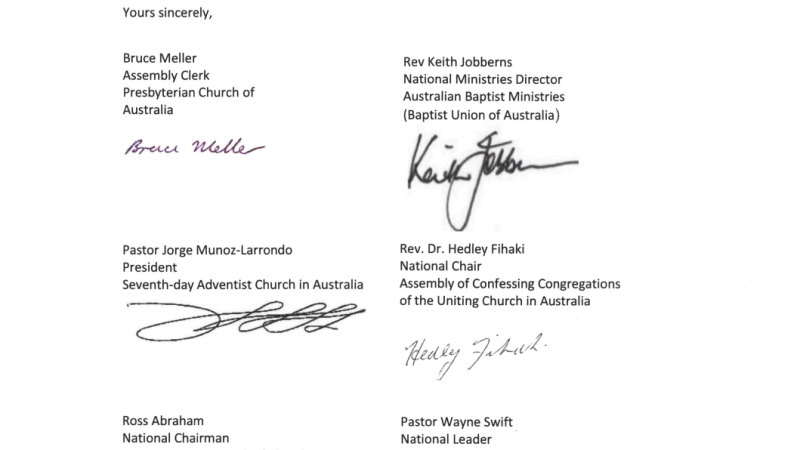 Yours sincerely,
Bruce Meller
Assembly Clerk
Presbyterian Church of
Australia
Bruce Meller
Rev Keith Jobberns
National Ministries Director
Australian Baptist Ministries
(Baptist Union of Australia)
Keith Jobberns
Pastor Jorge Munoz-Larrondo
President
Seventh-day Adventist Church in Australia
Rev. Dr. Hedley Fihaki
National Chair
Assembly of Confessing Congregations
of the Uniting Church in Australia
Hedley Fihaki
Ross Abraham
National Chairman
Pastor Wayne Swift
National Leader